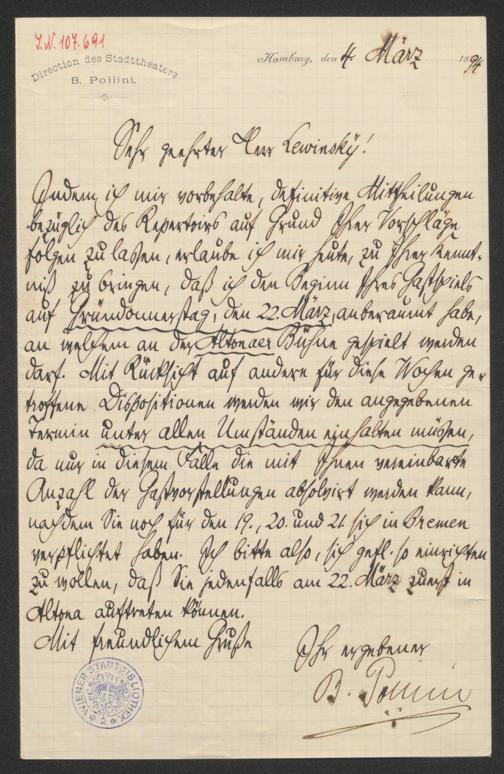 J.N. 107.691
Direction des Stadttheaters
B. Pollini.
Hamburg, den 4. März 1894
Sehr geehrter Herr Lewinsky!
Indem ich mir vorbehalte, definitive Mittheilungen
bezüglich des Repertoirs auf Grund Ihrer Vorschläge
folgen zu lassen, erlaube ich mir heute, zu Ihrer Kennt-
niß zu bringen, daß ich den Beginn Ihres Gastspiels
auf Gründonnerstag, den 22. März, anberaumt habe,
an welchem an der Altonaer Bühne gespielt werden
darf. Mit Rücksicht auf andere für diese Wochen ge-
troffene Dispositionen werden wir den angegebenen
Termin unter allen Umständen einhalten müssen,
da nur in diesem Falle die mit Ihnen vereinbarte
Anzahl der Gastvorstellungen absolvirt werden kann,
nachdem Sie noch für den 19., 20. und 21 sich in Bremen
verpflichtet haben. Ich bitte also, sich gefl. so einrichten
zu wollen, daß Sie jedenfalls am 22. März zuerst in
Altona auftreten können.
Mit freundlichem Gruße
Ihr ergebener
B. Pollini
WIENER STADTBIBLIOTHEK